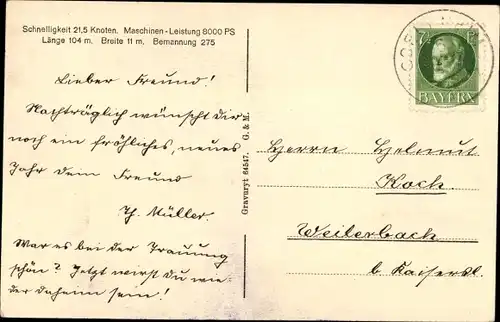 Schnelligkeit 21,5 Knoten. Maschinen-Leistung 8000 PS
Länge 104 m. Breite 11 m. Bemannung 275
Lieber Freund!
Nachträglich wünscht dir
noch ein fröhliches, neues
Jahr dein Freund
Th. Müller.
War es bei der Trauung
schön? Jetzt wirst du wie-
der daheim sein!
Gravuryt 64547. G. & M.
7½ Pf
BAYERN
Herrn Helmut
Koch.
Weilerbach
b. Kaisersl.